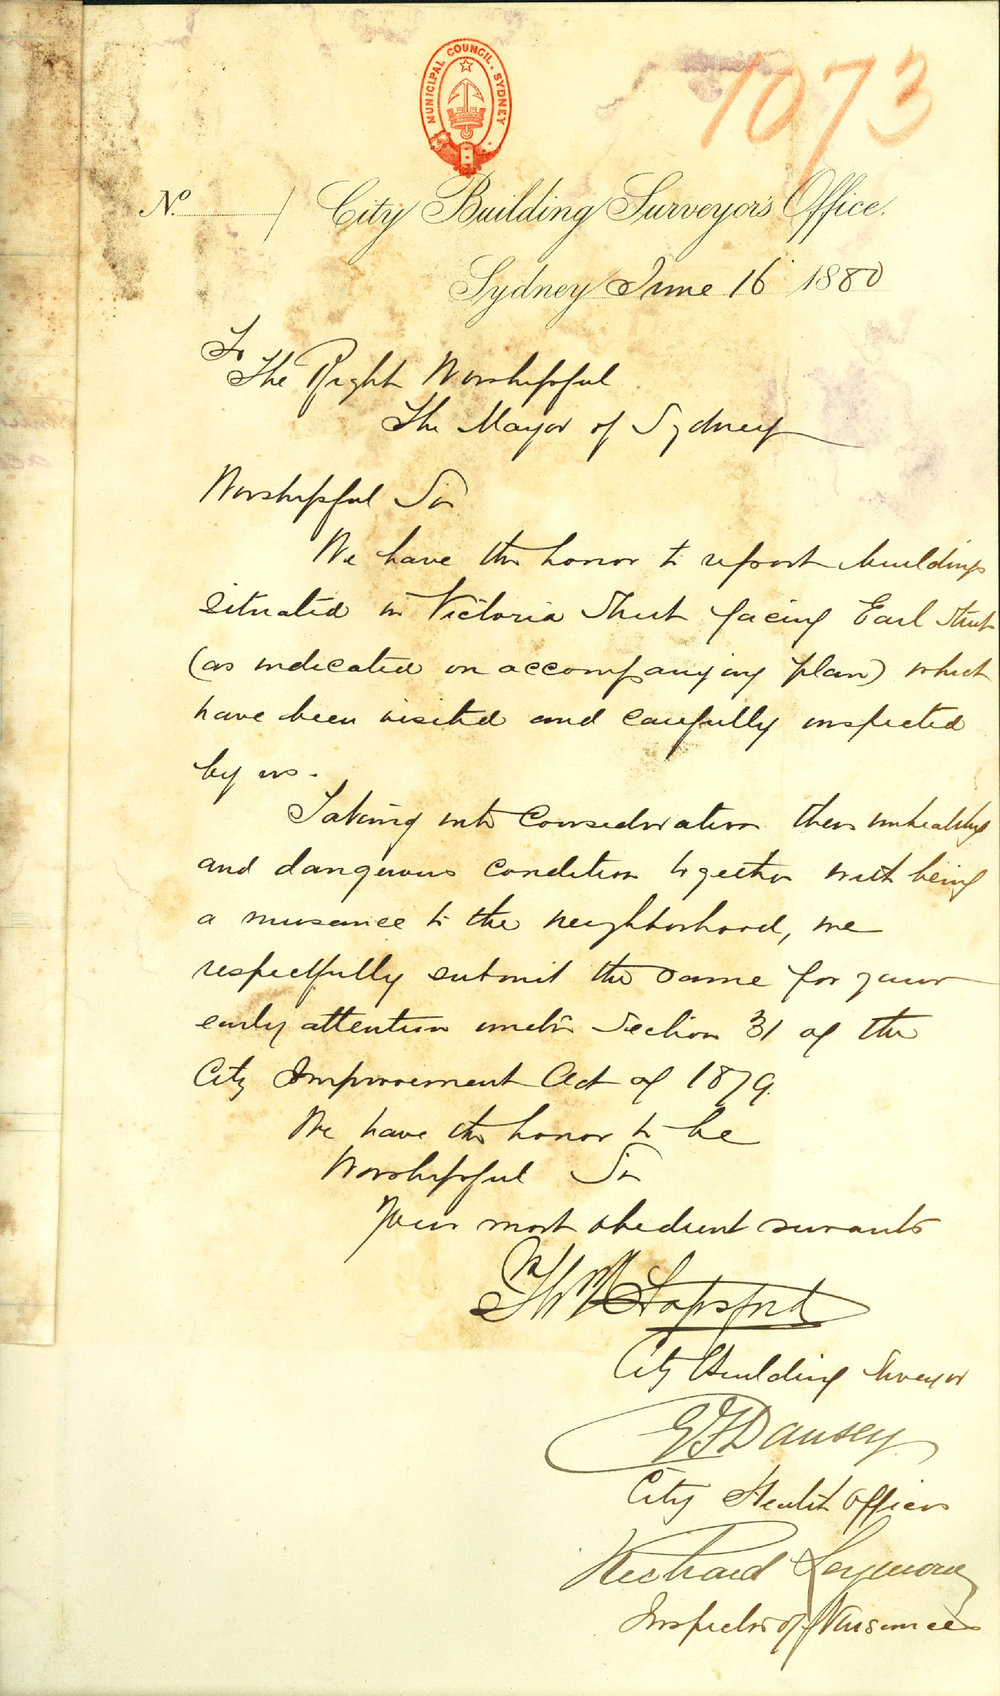 MUNICIPAL COUNCIL. SYDNEY
1073
No. / City Building Surveyor's Office.
Sydney June 16 1880
To
The Right Worshipful
The Mayor of Sydney
Worshipful Sir
We have the honor to report buildings
situated in Victoria Street facing Earl Street
(as indicated on accompanying plan) which
have been visited and carefully inspected
by us.
Taking into consideration their unhealthy
and dangerous condition together with being
a nuisance to the neighborhood, we
respectfully submit the same for your
early attention under Section 31 of the
City Improvement Act of 1879.
We have the honor to be
Worshipful Sir
Your most obedient servants
Sapsford
City Building Surveyor
G F Dansey
City Health Officer
Richard Seymour
Inspector of Nuisances